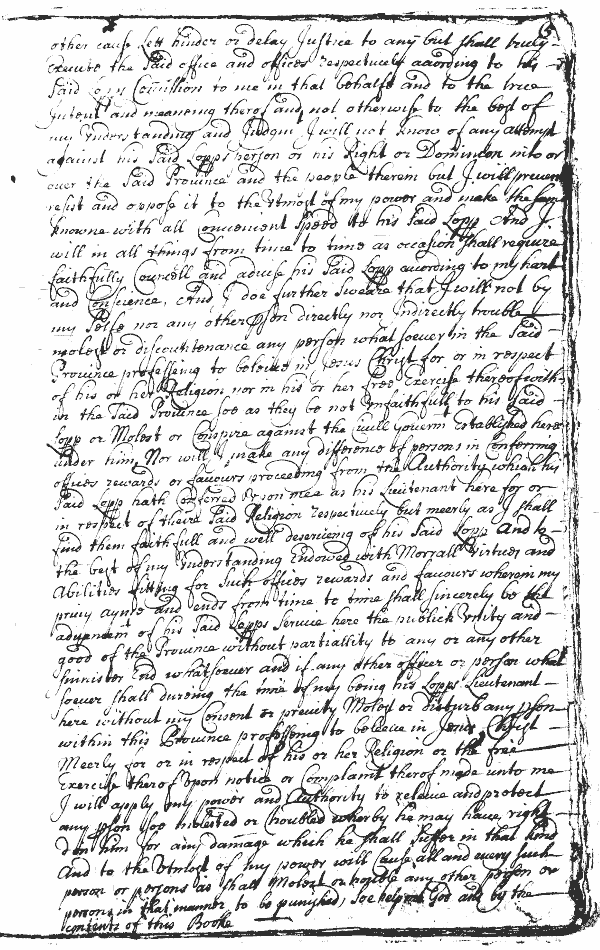 other cause Lett hinder or delay Justice to any but shall truly
Execute the said office and offices respectively according to his
said Lopps Comission to me in that behalfe and to the true
Intent and meaning therof and not otherwise to the best of
my Understanding and Judgmt I will not know of any attempt
against his said Lopps person or his Right or Dominion into or
over the said Province and the people therein but I will prevent
resist and oppose it to the Utmost of my power and make the same
knowne with all Convenient speed to his said Lopp And I
will in all things from time to time as occasion shall require
faithfully Councell and advise his said Lopp according to my heart
and Conscience, And I doe further sweare that I will not by
my Selfe nor any other pson directly nor Indirectly trouble
molest or discountenance any person whatsoever in the said
Province professing to beleive in Jesus Christ for or in respect
of his or her Religion nor in his or her free Exercise thereof with
in the said Province soe as they be not Unfaithfull to his said
Lopp or Molest or Conspire against the Civill Governt Established here
under him, Nor will I make any difference of persons in Conferring
offices rewards or favours proceeding from the Authority which his
said Lopp hath Conferred Upon mee as his Lieutenant here for or
in respect of theire said Religion respectively but meerly as I shall
find them faithfull and well deserveing of his said Lopp And to
the best of my Understanding Endowed with Morrall Virtues and
Abilities fitting for such offices rewards and favours wherein my
privy ayme and ends from time to time shall sincerely be the
advancemt of his said Lopps Service here the publick Unity and
good of the Province without partiallity to any or any other
sinister End whatsoever and if any other officer or person what
soever shall dureing the time of my being his Lopps Lieutenant
here without my Consent or previty Molest or disturb any pson
within this Province professing to beleeve in Jesus Christ
Meerly for or in respect of his or her Religion or the free
Exercise therof Upon notice or Complaint therof made unto me
I will apply my power and Authority to releive and protect
any pson soe molested or troubled wherby he may have right
don him for any damage which he shall suffer in that kind
And to the Utmost of my power will Cause all and every such
person or persons as shall Molest or trouble any other person or
persons in that manner to be punished, soe help me God and by the
contents of this Booke